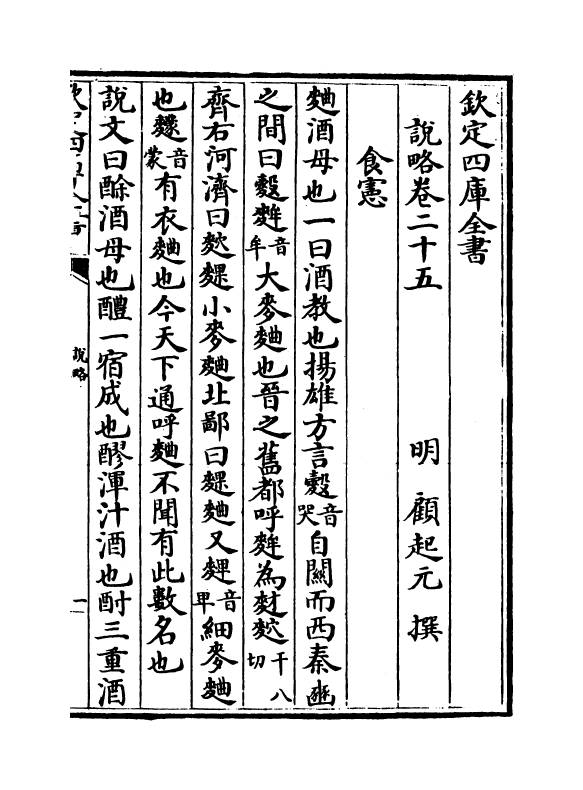 欽定四庫全書
說略卷二十五
明 顧起元 撰
食憲
麯酒母也一曰酒教也揚雄方言䴬音哭自關而西秦豳
之間曰䴬麰音牟大麥麯也晉之舊都呼麰為䴭䴰干八切
齊右河濟曰䴰䴹小麥麯北鄙曰䴹麯又䴽音卑細麥麯
也䴿音蒙有衣麯也今天下通呼麯不聞有此數名也
說文曰酴酒母也醴一宿成也醪渾汁酒也酎三重酒
說略
一